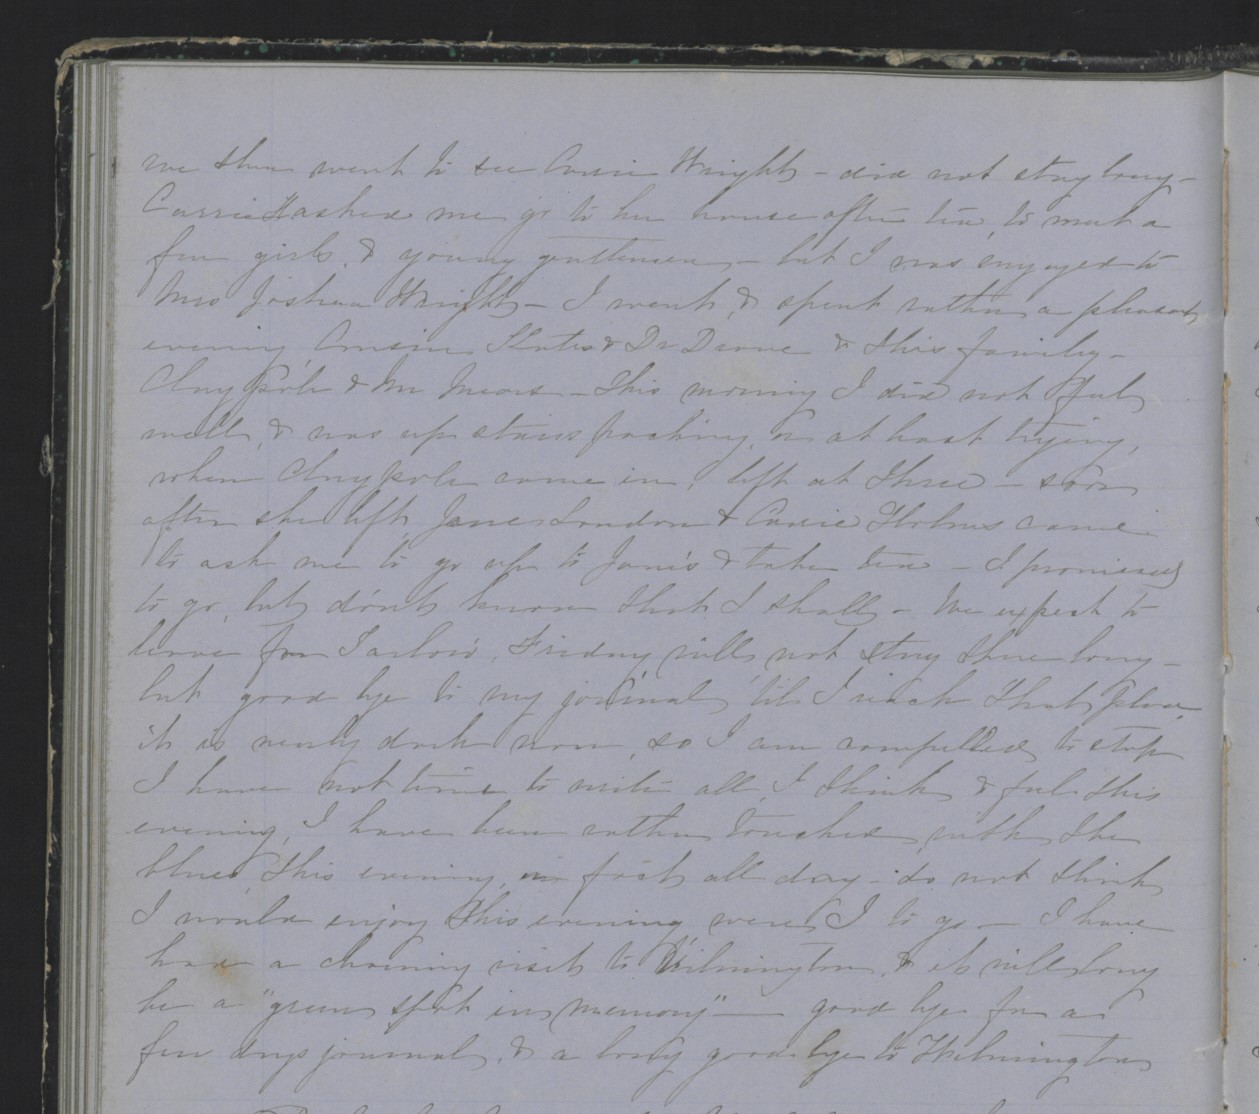 we then went to see Carrie Wright - did not stay long -
Carrie H asked me go to her house after tea, to meet a
few girls, & young gentlemen - but I was engaged to
Mrs Joshua Wright - I went, & spent rather a pleasant
evening, Cousin & Dr Drane & this family -
Claypole & Mr Mears - This morning I did not feel
well, & was up stairs packing, or at least trying,
when Claypole came in, left at three - soon
after she left, Jane London & Carrie Holmes came
to ask me to go up to Jane's & take tea - I promised
to go, but don't know that I shall - We expect to
leave for Tarboro', Friday, will not stay there long -
but good bye to my journal, 'till I reach that place,
it is nearly dark now, so I am compelled to stop
I have not time to write all, I think & feel this
evening, I have been rather touched with the
blues, this evening, in fact all day - do not think
I would enjoy this evening, were I to go - I have
had a charming visit to Wilmington, & it will long
be a "green spot in memory" - good bye for a
few days journal, & a long good-bye to Wilmington